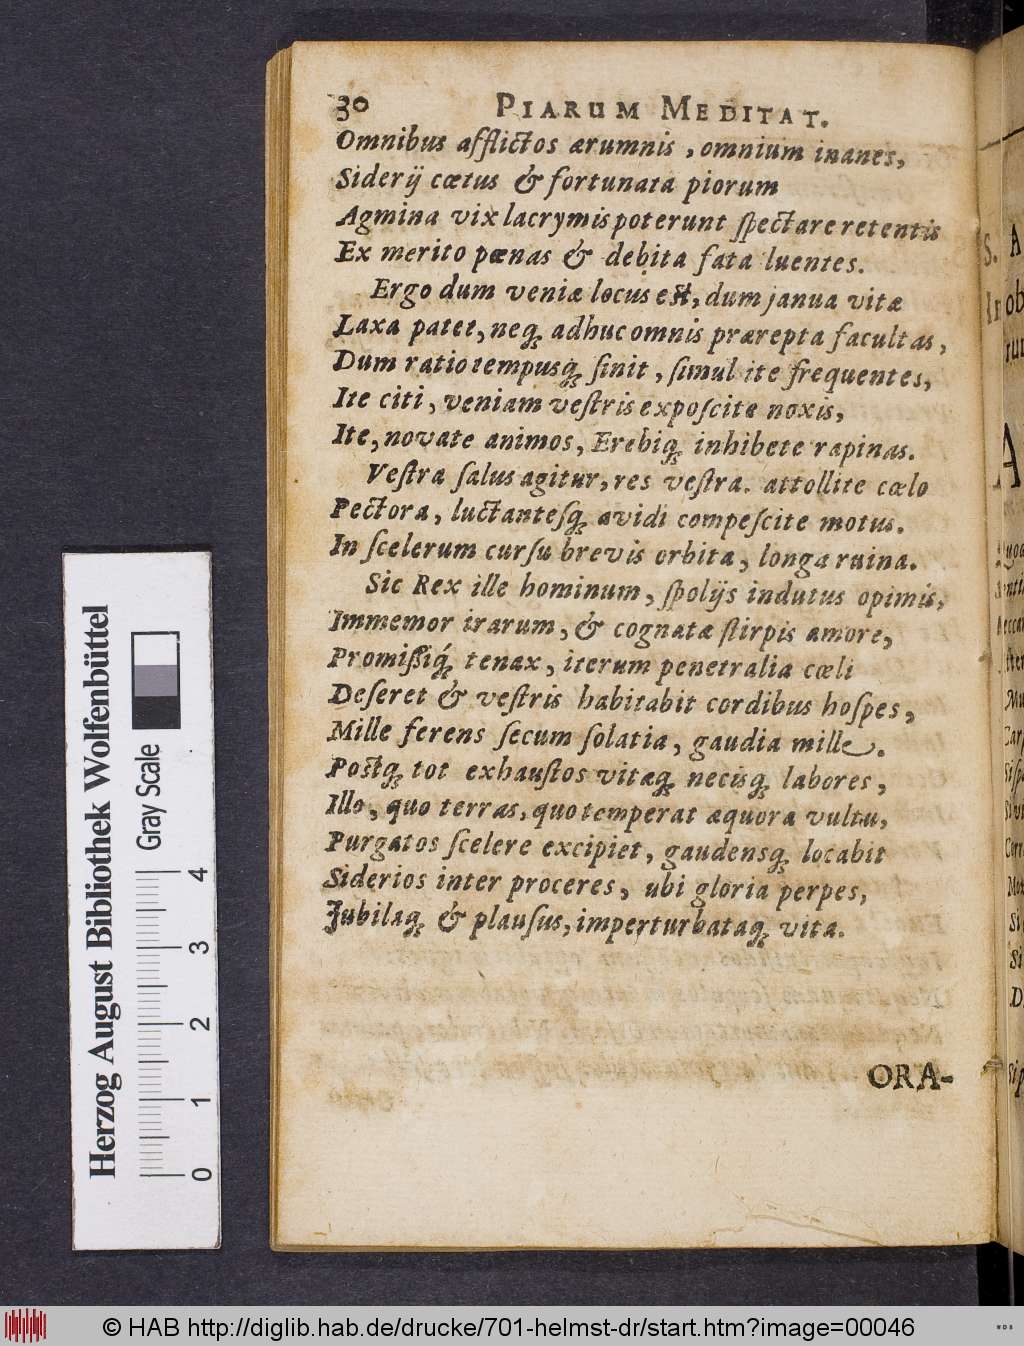 30 PIARUM MEDITAT.
Omnibus afflictos ærumnis, omnium inanes,
Siderij cœtus & fortunata piorum
Agmina vix lacrymis poterunt ſpectare retentis
Ex merito pœnas & debita fata luentes.
Ergo dum veniæ locus eſt, dum janua vitæ
Laxa patet, neq; adhuc omnis prærepta facultas,
Dum ratio tempusq; ſinit, ſimul ite frequentes,
Ite citi, veniam veſtris expoſcite noxis,
Ite, novate animos, Erebiq; inhibete rapinas.
Veſtra ſalus agitur, res veſtra. attollite cœlo
Pectora, luctanteſq; avidi compeſcite motus.
In ſcelerum curſu brevis orbita, longa ruina.
Sic Rex ille hominum, ſpolijs indutus opimis,
Immemor irarum, & cognatæ ſtirpis amore,
Promiſſiq́; tenax, iterum penetralia cœli
Deſeret & veſtris habitabit cordibus hoſpes,
Mille ferens ſecum ſolatia, gaudia mille.
Poſtq; tot exhauſtos vitæq; necisq; labores,
Illo, quo terras, quo temperat æquora vultu,
Purgatos ſcelere excipiet, gaudensq; locabit
Siderios inter proceres, ubi gloria perpes,
Jubilaq; & plauſus, imperturbataq; vita.
ORA-
Herzog August Bibliothek Wolfenbüttel
Gray Scale
0 1 2 3 4
© HAB http://diglib.hab.de/drucke/701-helmst-dr/start.htm?image=00046